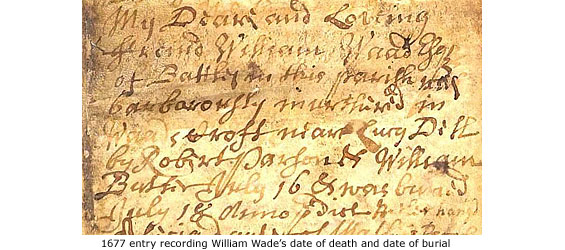 My Deare and Loving
ffreind William Waad Esq
of Battly in this parish was
barbarously murthured in
Waads Croft neare Lucy Dell
by Robert Parson & William
Batte July 16 & was buried
July 18 Anno
1677 entry recording William Wade's date of death and date of burial